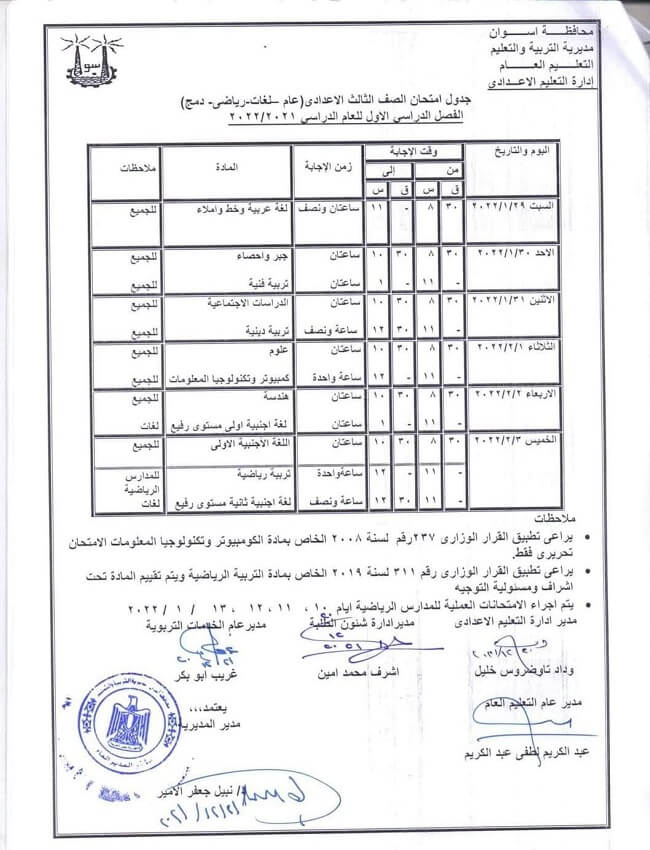 محافظة اسوان
مديرية التربية والتعليم
التعليم العام
إدارة التعليم الاعدادى
جدول امتحان الصف الثالث الاعدادى(عام –لغات-رياضى- دمج)
الفصل الدراسي الاول للعام الدراسي ٢٠٢٢/٢٠٢١
اليوم والتاريخ وقت الإجابة زمن الإجابة المادة ملاحظات
من إلى
ق س ق س
السبت ٢٠٢٢/١/٢٩ ٣٠ ٨ - ١١ ساعتان ونصف لغة عربية وخط واملاء للجميع
الاحد ٢٠٢٢/١/٣٠ ٣٠ ٨ ٣٠ ١٠ ساعتان جبر واحصاء للجميع
- ١١ - ١ ساعتان تربية فنية للجميع
الاثنين ٢٠٢٢/١/٣١ ٣٠ ٨ ٣٠ ١٠ ساعتان الدراسات الاجتماعية للجميع
- ١١ ٣٠ ١٢ ساعة ونصف تربية دينية للجميع
الثلاثاء ٢٠٢٢/٢/١ ٣٠ ٨ ٣٠ ١٠ ساعتان علوم للجميع
- ١١ - ١٢ ساعة واحدة كمبيوتر وتكنولوجيا المعلومات للجميع
الاربعاء ٢٠٢٢/٢/٢ ٣٠ ٨ ٣٠ ١٠ ساعتان هندسة للجميع
- ١١ - ١ ساعتان لغة اجنبية اولى مستوى رفيع لغات
الخميس ٢٠٢٢/٢/٣ ٣٠ ٨ ٣٠ ١٠ ساعتان اللغة الأجنبية الاولى للجميع
- ١١ - ١٢ ساعةواحدة تربية رياضية للمدارس الرياضية
- ١١ ٣٠ ١٢ ساعة ونصف لغة اجنبية ثانية مستوى رفيع لغات
ملاحظات
يراعى تطبيق القرار الوزارى ٢٣٧رقم لسنة ٢٠٠٨ الخاص بمادة الكومبيوتر وتكنولوجيا المعلومات الامتحان
تحريرى فقط.
يراعى تطبيق القرار الوزارى رقم ٣١١ لسنة ٢٠١٩ الخاص بمادة التربية الرياضية ويتم تقييم المادة تحت
اشراف ومسئولية التوجيه
يتم اجراء الامتحانات العملية للمدارس الرياضية ايام ١٠، ١١، ١٢، ١٣ / ١ / ٢٠٢٢
مدير ادارة التعليم الاعدادى مديرادارة شئون الطلبة مديرعام الخدمات التربوية
وداد تاوضروس خليل اشرف محمد امين غريب ابو بكر
مدير عام التعليم العام يعتمد،،،
مدير المديرية
عبد الكريم لطفى عبد الكريم
د/ نبيل جعفر الامير